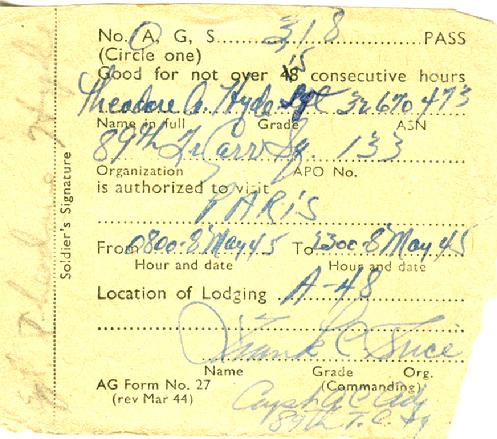 No. O, A, G, S. 318 PASS
(Circle one)
Good for not over 48 15 consecutive hours
Theodore A. Hyde Sgt 32670473
Name in full Grade ASN
89th Tr Carr Sq. 133
Organization APO No.
is authorized to visit
PARIS
From 0800-8 May 45 To 2300-8 May 45
Hour and date Hour and date
Location of Lodging A-48
Frank C
Name Grade Org.
AG Form No. 27 (Commanding)
(rev Mar 44) Capt AC Adj
89th T.C. Sq
Soldier's Signature